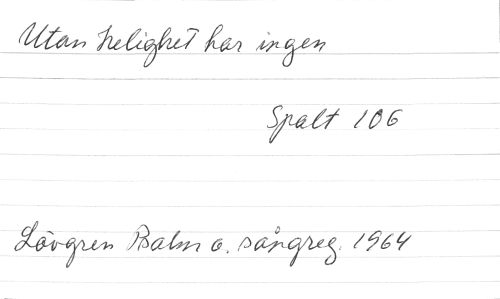 Utan helighet har ingen
Spalt 106
Lövgren Psalm o. sångreg. 1964